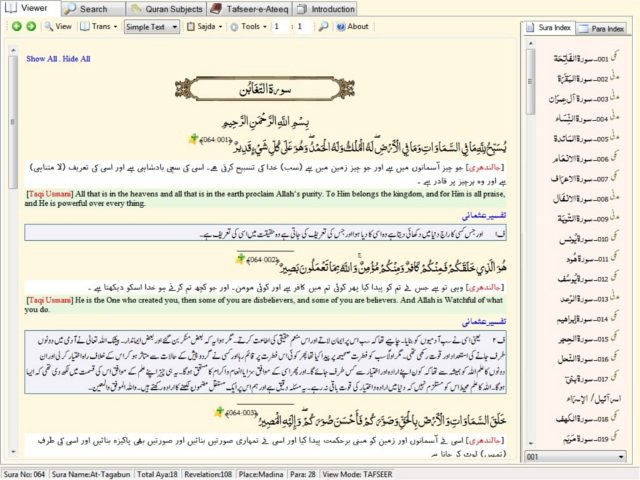 Viewer
Search
Quran Subjects
Tafseer-e-Ateeq
Introduction
View
Trans
Simple Text
Sajda
Tools
1 : 1
About
Show All . Hide All
سورة التغابن
بِسْمِ اللّٰهِ الرَّحْمٰنِ الرَّحِيْمِ
يُسَبِّحُ لِلَّهِ مَا فِي السَّمَاوَاتِ وَمَا فِي الْأَرْضِ ۖ لَهُ الْمُلْكُ وَلَهُ الْحَمْدُ ۖ وَهُوَ عَلَىٰ كُلِّ شَيْءٍ قَدِيرٌ ﴿064:001﴾
[جالندھری] جو چیز آسمانوں میں ہے اور جو چیز زمین میں ہے (سب) خدا کی تسبیح کرتی ہے۔ اسی کی سچی بادشاہی ہے اور اسی کی تعریف (لا متناہی)
ہے اور وہ ہرچیز پر قادر ہے ۔
[Taqi Usmani] All that is in the heavens and all that is in the earth proclaim Allah's purity. To Him belongs the kingdom, and for Him is all praise,
and He is powerful over every thing.
تفسیر عثمانی
ف۱ اور جس کسی کا راج دنیا میں دکھائی دیتا ہے وہ اسی کا دیا ہوا اور جس کی تعریف کی جاتی ہے وہ حقیقت میں اسی کی تعریف ہے۔
هُوَ الَّذِي خَلَقَكُمْ فَمِنْكُمْ كَافِرٌ وَمِنْكُمْ مُؤْمِنٌ ۚ وَاللَّهُ بِمَا تَعْمَلُونَ بَصِيرٌ ﴿064:002﴾
[جالندھری] وہی تو ہے جس نے تم کو پیدا کیا پھر کوئی تم میں کافر ہے اور کوئی مومن۔ اور جو کچھ تم کرتے ہو خدا اسکو دیکھتا ہے ۔
[Taqi Usmani] He is the One who created you, then some of you are disbelievers, and some of you are believers. And Allah is Watchful of what
you do.
تفسیر عثمانی
خَلَقَ السَّمَاوَاتِ وَالْأَرْضَ بِالْحَقِّ وَصَوَّرَكُمْ فَأَحْسَنَ صُوَرَكُمْ ۖ وَإِلَيْهِ الْمَصِيرُ ﴿064:003﴾
[جالندھری] اسی نے آسمانوں اور زمین کو مبنی برحکمت پیدا کیا اور اسی نے تمہاری صورتیں بنائیں اور صورتیں بھی پاکیزہ بنائیں اور اسی کی طرف
(تمہیں) لوٹ کر جانا ہے
Sura Index
Para Index
001-سورة الفاتحة مكي
002-سورة البقرة مدني
003-سورة آل عمران مدني
004-سورة النساء مدني
005-سورة المائدة مدني
006-سورة الانعام مكي
007-سورة الاعراف مكي
008-سورة الانفال مدني
009-سورة التوبة مدني
010-سورة يونس مكي
011-سورة هود مكي
012-سورة يوسف مكي
013-سورة الرعد مدني
014-سورة ابراهيم مكي
015-سورة الحجر مكي
016-سورة النحل مكي
017-سورة بني مكي
اسرآئيل / الإسراء
018-سورة الكهف مكي
019-سورة مريم مكي
001
Sura No: 064
Sura Name:At-Tagabun
Total Aya:18
Revelation:108
Place:Madina
Para: 28
View Mode: TAFSEER